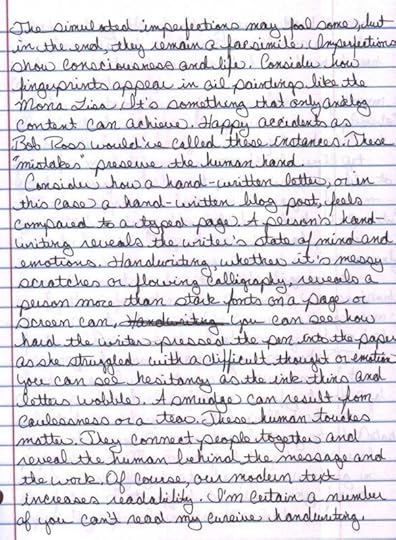 The simulated imperfections may fool some, but
in the end, they remain a facsimile. Imperfections
show consciousness and life. Consider how
fingerprints appear in oil paintings like the
Mona Lisa. It's something that only analog
content can achieve. Happy accidents as
Bob Ross would've called these instances. These
"mistakes" preserve the human hand.
Consider how a hand-written letter, or in
this case a hand-written blog post, feels
compared to a typed page. A person's hand-
writing reveals the writer's state of mind and
emotions. Handwriting, whether it's messy
scratches or flowing calligraphy, reveals a
person more than stark fonts on a page or
screen can. Handwriting You can see how
hard the writer pressed the pen into the paper
as she struggled with a difficult thought or emotion
You can see hesitancy as the ink thins and
letters wobble. A smudge can result from
carelessness or a tear. These human touches
matter. They connect people together and
reveal the human behind the message and
the work. Of course, our modern text
increases readability. I'm certain a number
of you can't read my cursive handwriting.